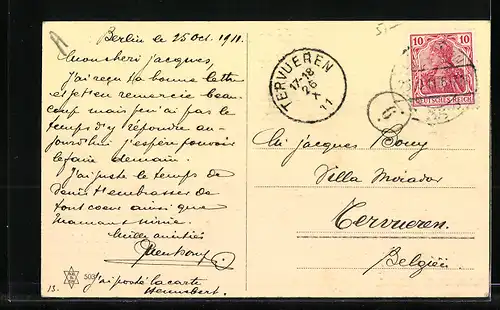 Berlin le 25 Oct. 1911.
Mon cheri jacques,
J'ai reçu ta bonne lettre
et je t'en remercie beau
coup mais je n'ai pas le
temps d'y répondre au-
jourd'hui j'espère pouvoir
le faire demain.
J'ai juste le temps de
t'embrasser de
tout coeur ainsi que
Maman
Mille amitiés
J'ai posté la carte
503
13.
5,-
TERVUEREN
17-18
26
X
11
10 10
DEUTSCHES REICH
6
jacques Bouy
Villa Mirador
Tervueren.
Belgien.